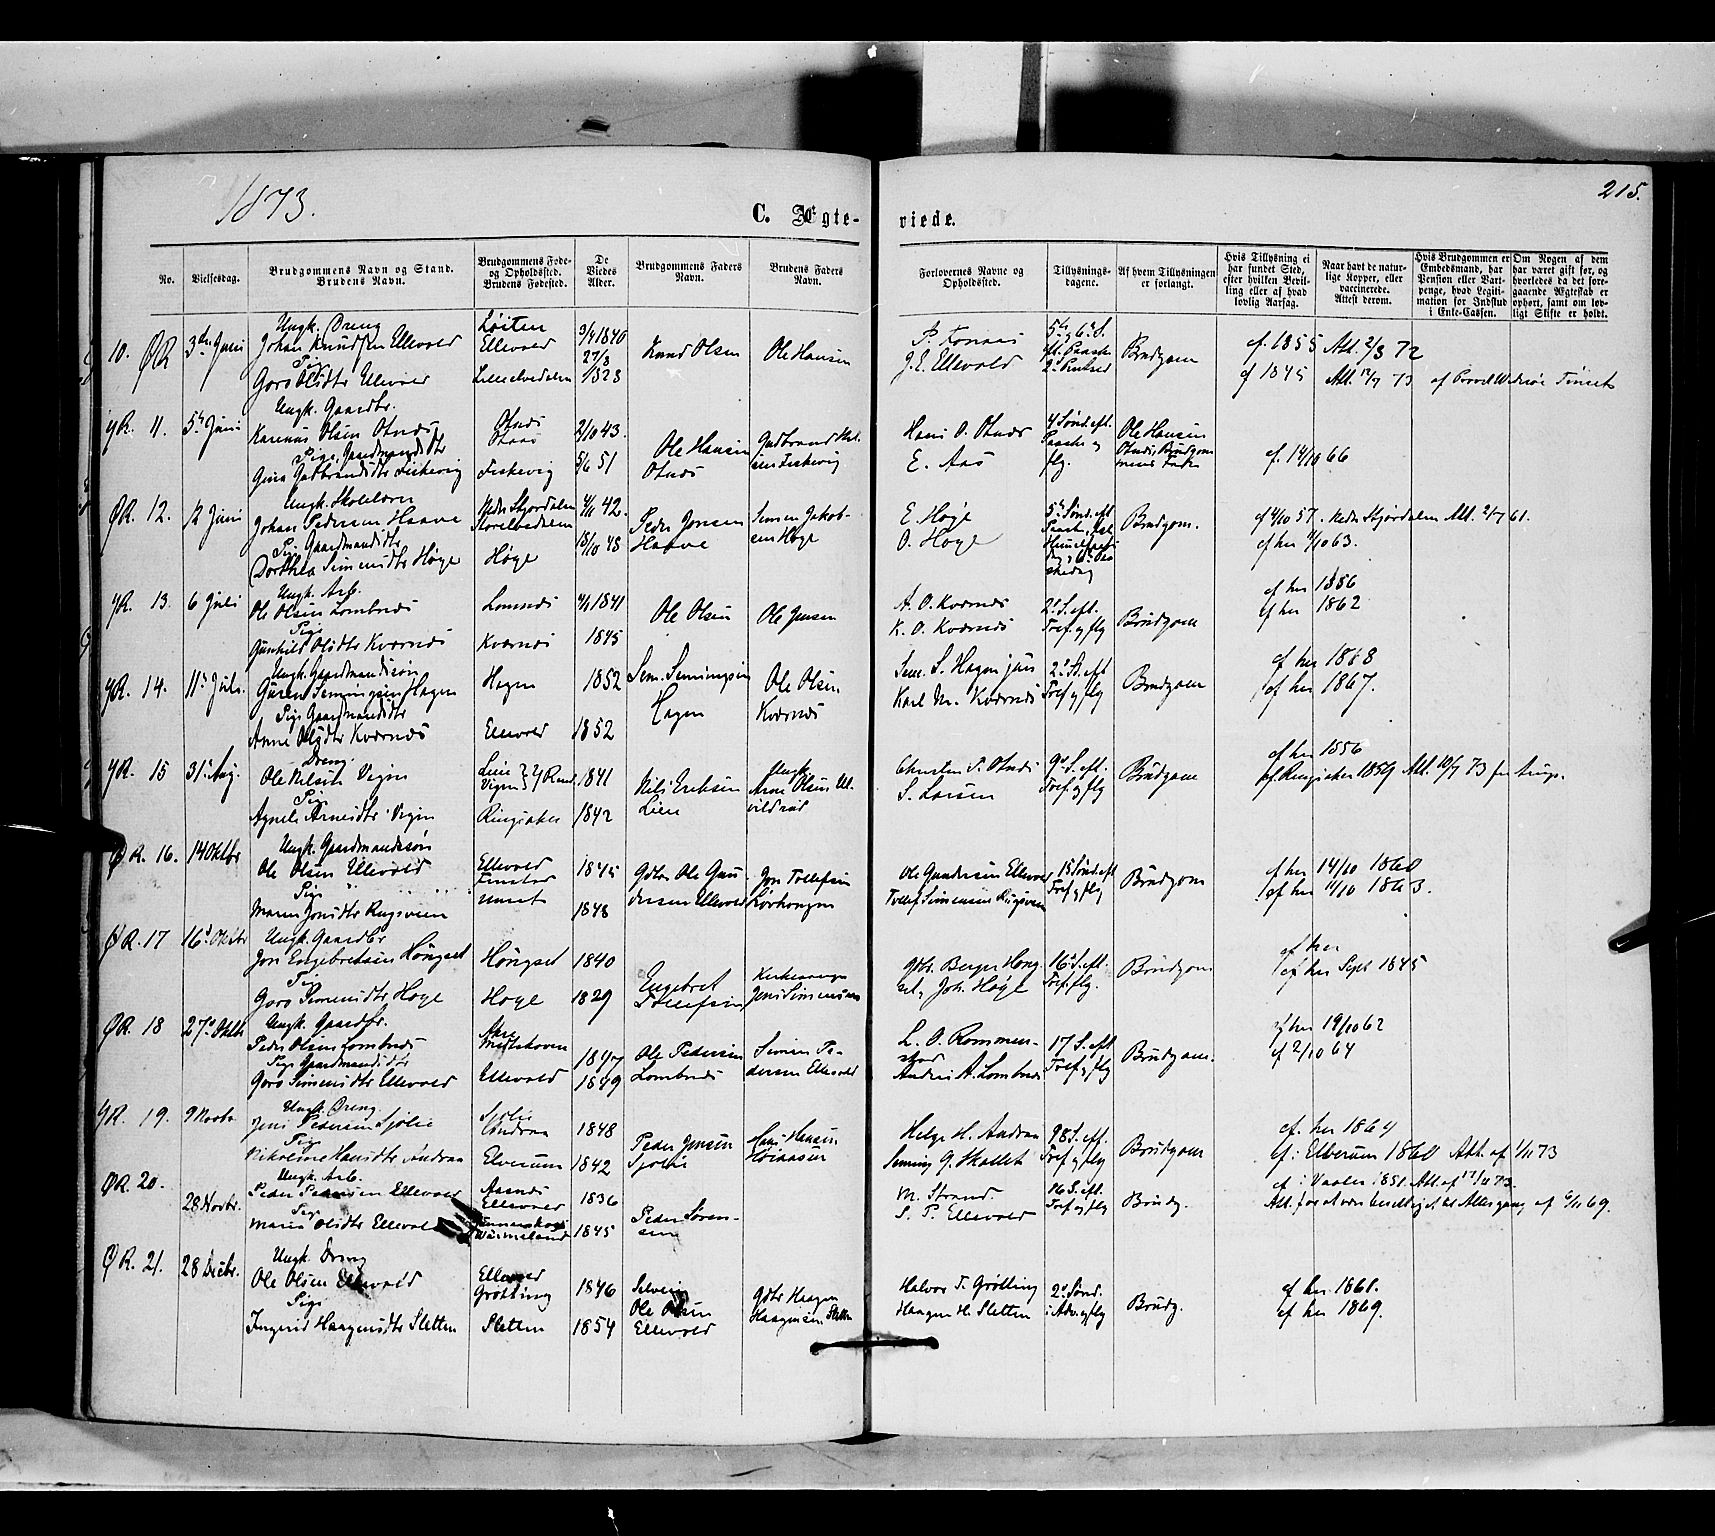 1873.
C. Ægte-
viede.
215.
No.
Vielsesdag.
Brudgommens Navn og Stand.
Brudens Navn.
Brudgommens Føde-
og Opholdssted.
Brudens Fødested.
De
Viedes
Alder.
Brudgommens Faders
Navn.
Brudens Faders
Navn.
Forlovernes Navne og
Opholdssted.
Tillysnings-
dagene.
Af hvem Tillysningen
er forlangt.
Hvis Tillysning ei
har fundet Sted,
efter hvilken Bevil-
ling eller af hvad
lovlig Aarsag.
Naar havt de natur-
lige Kopper, eller
vaccinerede.
Attest derom.
Hvis Brudgommen er
Embedsmand, har
Pension eller Vart-
penge, hvad Legiti-
mation for Indskud
i Enke-Cassen.
Om Nogen af dem
har været gift før, og
hvorledes da det fore-
gaaende Ægteskab er
ophørt, samt om lov-
ligt Skifte er holdt.
10. ØR 3die Juni
Ungk. Dreng
Johan Knudsen Ellevold
Pige
Goro Olsdtr Ellevold
Løiten
Ellevold
Lilleelvedalen
9/4 1840
27/3
1828
Knud Olsen
Ole Hansen
J. E. Ellevold
Brudgom
cf. 1855 Att. 2/3 72
cf 1845 Att. 73
YR. 11. 5te Juni
Ungk. Gaardbr.
Karenus Olsen Otnes
Pige Gaardmandsdtr
Gina Gudbrandsdtr Fiskevig
Otnes
Fiskevig
2/10 43.
5/6 51
Ole Hansen
Otnes
Gudbrand
sen Fiskevig
Hans O. Otnes
E. Aas
4 Sønd. eft.
Paaske og
flg.
Ole Hansen
Otnes, Brudgom
mens Fader
cf. 14/10 66
ØR. 12. 12 Juni
Ungk. Skolelærer
Johan Pedersen Haave
Pige Gaardmandsdtr
Dorthea Simensdtr Høge
Nedre Stjordalen
Storelvedalen
Høge
4/11 42.
18/10 48
Peder Jonsen
Haave
Simen Jakob-
sen Høge
E. Høge
O. Høge
Brudgom.
57. Nedre Stjordalen Att. 2/7 61.
cf her 4/10 63.
YR. 13. 6 Juli
Ungk. Arb.
Ole Olsen Lombnes
Pige
Gunhild Olsdtr Kværnes
Lomnes
Kværnes
1841
1845
Ole Olsen
Ole Jensen
A. O. Kværnes
K. O. Kværnes
2d S. eft.
Tref. og flg
Brudgom
cf her 1856
cf her 1862
YR. 14. 11te Juli
Ungk. Gaardmandssøn
Simingsen Hagen
Pige Gaardmandsdtr
Anne Olsdtr Kværnes
Hagen
Ellevold
1852
1852
Sem. Semingsen
Hagen
Ole Olsen
Kværnes
Sem. S. Hagen jun
Karl M. Kværnes
2d S. eft
Tref og flg
Brudgom
cf her 1868
cf her 1867.
YR. 15 31te Aug.
Dreng
Ole Nilsen Vigen
Pige
Agnete Arnesdtr Vigen
Lien
Vigen } Y Rend.
Ringsaker
1841
1842
Nils Eriksen
Lien
Ungk.
Arne Olsen Ul-
Christen T. Otnes
S. Larsen
9d S. eft.
Tref og flg
Brudgom
cf her 1856
cf Ringsaker 1859 Att. 10/7 73
ØR. 16. 14 Oktbr
Ungk. Gaardmandssøn
Ole Olsen Ellevold
Pige
Maren Jonsdtr Rugsveen
Ellevold
Finstad
1845
1848
Gdbr. Ole Gun-
dersen Ellevold
Jon Tollefsen
Ole Gundersen Ellevold
Tollef Simensen Rugsveen
15 Sønd. eft
Tref og flg
Brudgom
cf her 14/10 1860
cf her 11/10 1863.
ØR. 17 16d Oktbr
Ungk. Gaardbr
Jon Engebretsen Høngset
Pige
Goro Simensdtr Høge
Høngset
Høge
1840
1829
Engebret
Tollefsen
Kirkesanger
Jens Simensen
Gdbr. Berger Høng-
set, Joh. Høge
16d S. eft.
Tref. flg.
Brudgom
cf her
cf her Sept 1845
ØR. 18 27d Oktbr
Ungk. Gaardbr.
Peder Olsen Lombnes
Pige Gaardmandsdtr
Goro Simensdtr Ellevold
Akre
Midtskoven
Ellevold
1847
1849
Ole Pedersen
Lombnes
Simen Pe-
dersen Ellevold
L. O. Rommen-
stad
Andrias A. Lombnes
17 S. eft
Tref og flg
Brudgom.
cf her 19/10 62
cf 2/10 64
YR. 19. 9 Novbr
Ungk. Dreng
Jens Pedersen Sjølie
Pige
Nikoline Hansdtr Andraa
Sjølie
Andraa
Elverum
1848
1842
Peder Jensen
Sjølie
Hans Hansen
Helge H. Andraa
Seming G. Skallet
Tref og flg
Brudgom
cf. her 1864
cf. i Elverum 1860 Att. af 1/11 73
ØR. 20.
28 Novbr.
Ungk. Arb.
Peder Pedersen Ellevold
Pige
Maria Olsdtr Ellevold
Aasnes
Ellevold
Wermeland
1836
1845
Peder Søren-
sen
M. Strand.
S. P. Ellevold
16 S. eft.
Tref og flg
Brudg.
cf. i Vaaler 1851. Att. af 17/11 73.
Att. for at være berettiget til Altergang af 6/11 69.
ØR. 21. 28 Decbr.
Ungk. Dreng
Ole Olsen Ellevold
Pige
Ingerid Haagensdtr Sletten
Ellevold
Grøtting
Sletten
1846
1854
Selveier
Ole Olsen
Ellevold
Gdbr Haagen
Haagensen Sletten
Halvor T. Grøtting
Haagen H. Sletten
2d Sønd.
i Adv. og flg
Brudg.
cf her 1861.
cf her 1869.